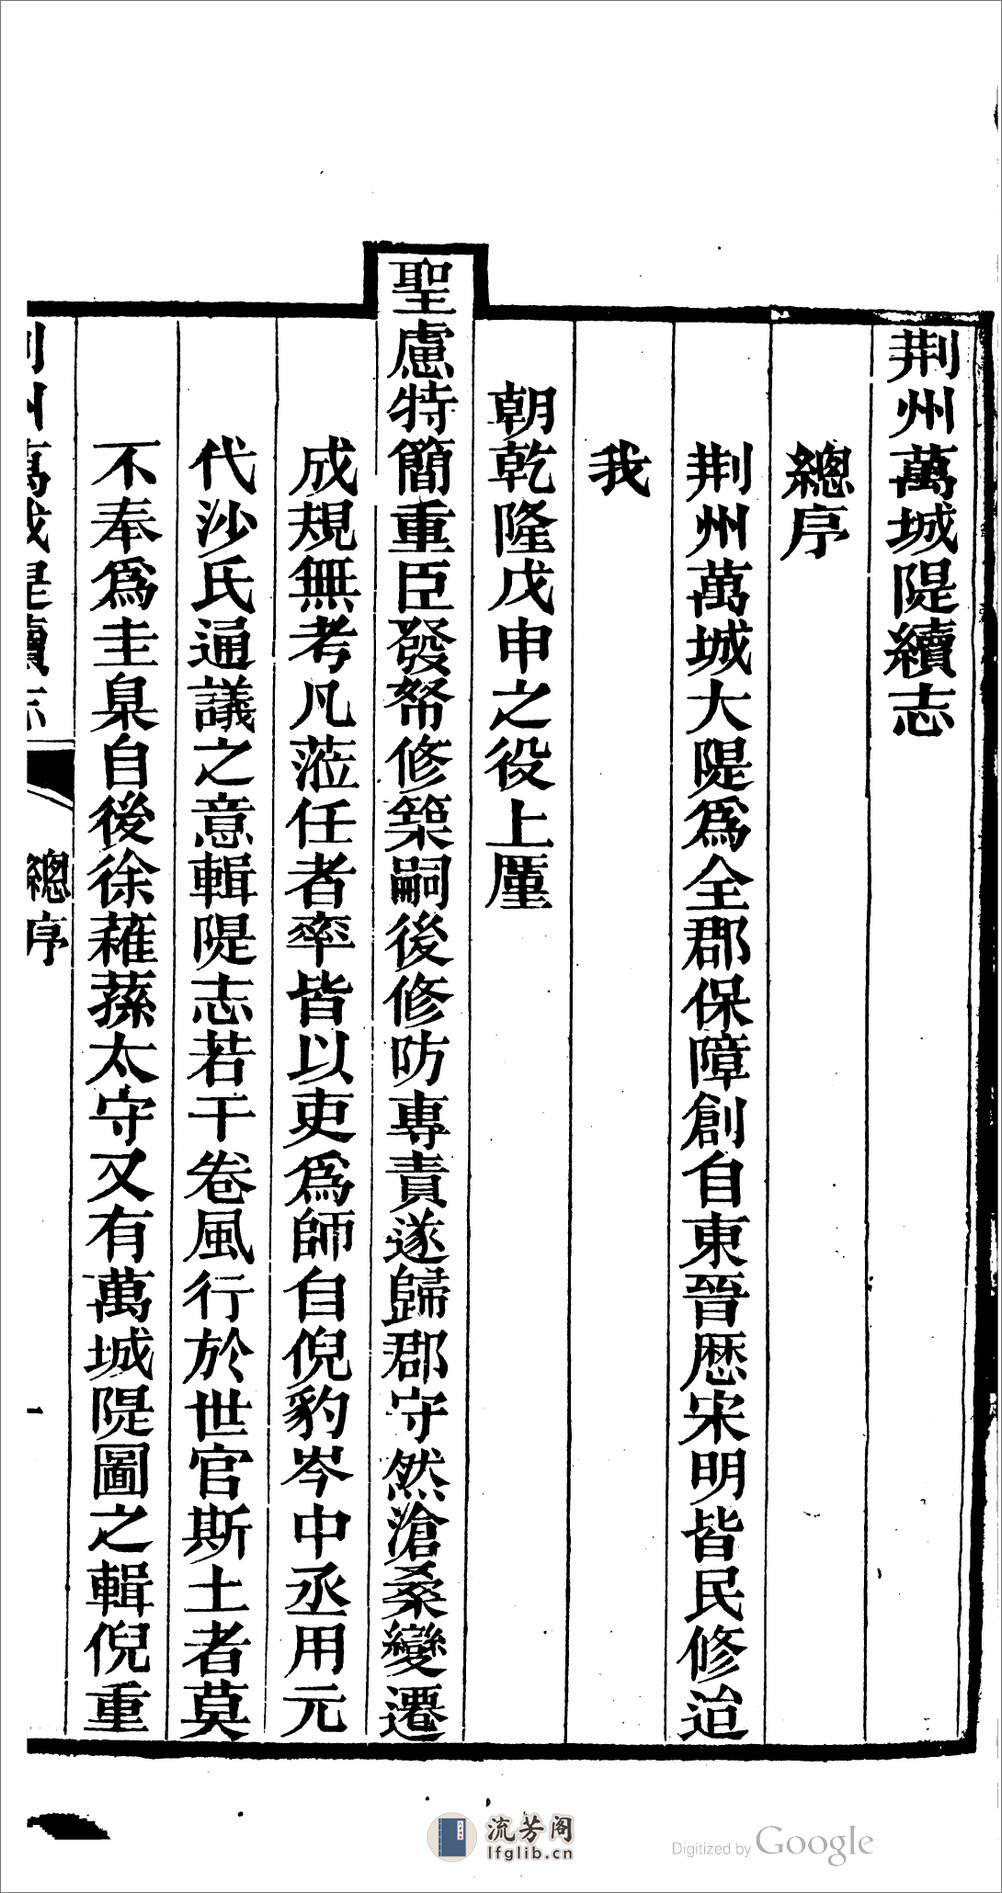 荆州萬城隄續志
總序
荆州萬城大隄爲全郡保障創自東晉歷宋明皆民修迨
我
朝乾隆戊申之役上厪
聖慮特簡重臣發帑修築嗣後修防專責遂歸郡守然滄桑變遷
成規無考凡蒞任者率皆以吏爲師自倪豹岑中丞用元
代沙氏通議之意輯隄志若干卷風行於世官斯土者莫
不奉爲圭臬自後徐蘿蓀太守又有萬城隄圖之輯倪重
荆州萬城隄續志
總序
一
流芳阁
lfglib.cn
Digitized by Google